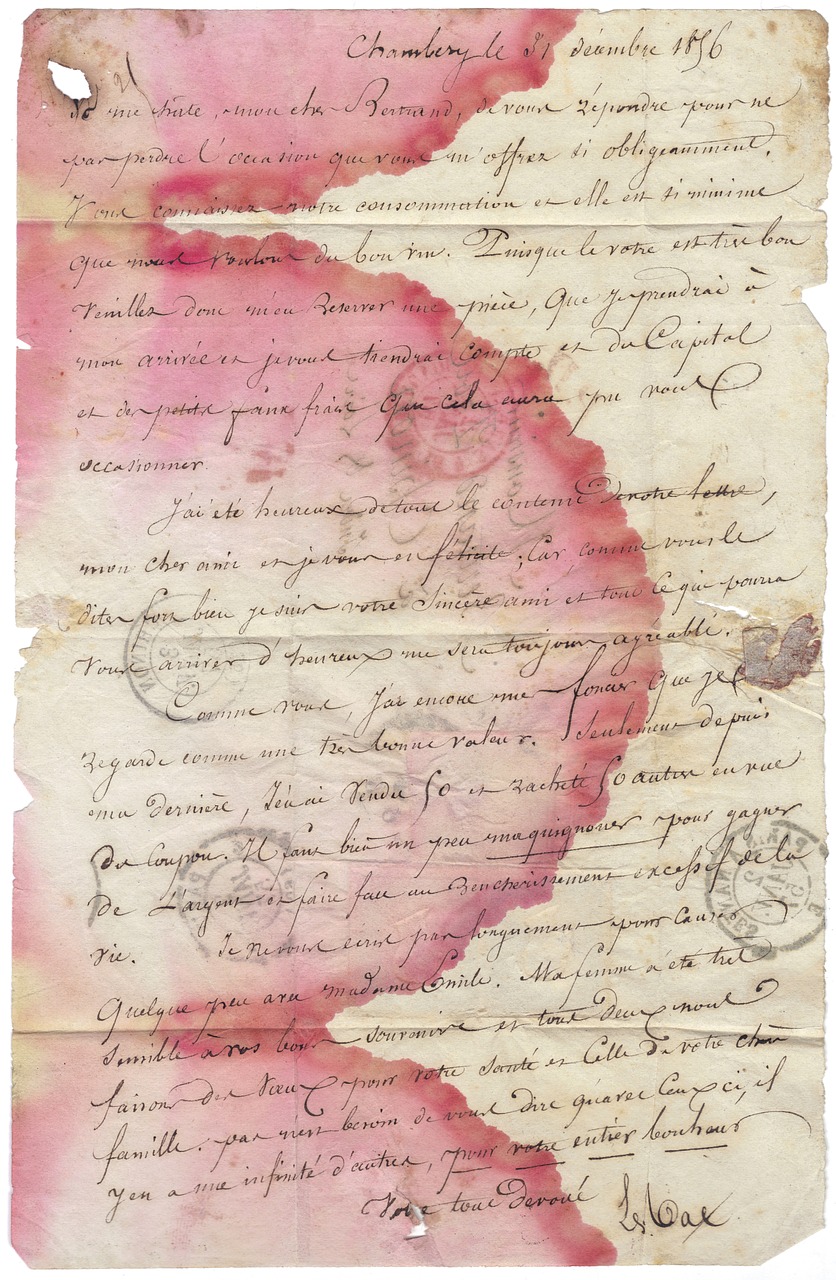 Chambery le 31 décembre 1856
Je me hâte, mon cher Bertrand, de vous répondre pour ne
pas perdre l'occasion que vous m'offrez si obligeamment.
Vous connaissez notre consommation et elle est si minime
que nous voulons du bon vin. Puisque le votre est très bon
Veuillez donc m'en Reserver une pièce, que je prendrai à
mon arrivée et je vous tiendrai compte et du Capital
et des petits faux frais que cela aura pu vous
occasionner.
J'ai été heureux de tout le contenu de votre lettre,
mon cher ami et je vous en félicite; Car, comme vous le
dites fort bien je suis votre Sincère ami et tout ce qui pourra
vous arriver d'heureux me sera toujours agréable.
Comme vous, j'ai encore mes foncier que je
Regarde comme une très bonne valeur. Seulement depuis
ma dernière, j'en ai vendu 50 et racheté 50 autres en vue
du Coupon. Il faut bien un peu maquignoner pour gagner
de L'argent et faire face au Rencherissement excessif de la
vie. Je ne vous écris pas longuement pour causer
Quelque peu avec madame Emile. Ma femme a été très
Sensible à vos bons souvenirs et tous deux nous
faisons des Vœux pour votre santé et Celle de votre chère
famille. pas n'est besoin de vous dire qu'avec Ceux ci, il
y en a une infinité d'autres, pour votre entier bonheur
Votre tout devoué